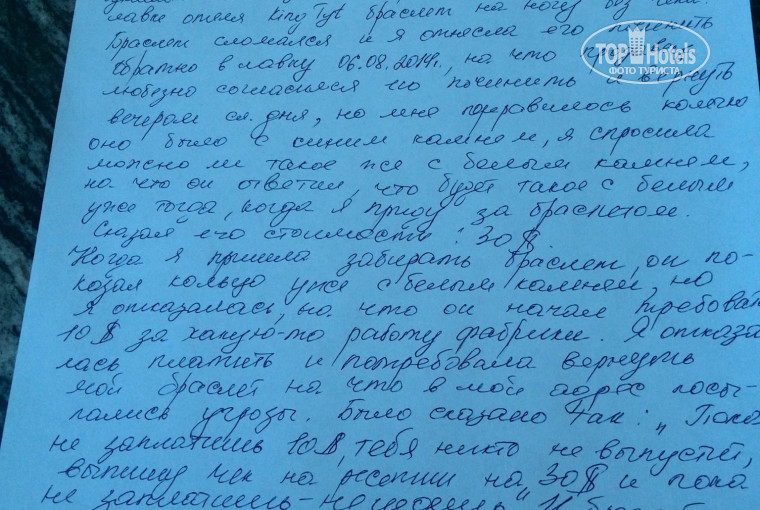 лавке отеля King Tyt браслет на ногу без чека.
Браслет сломался и я отнесла его починить
обратно в лавку 06.08.2014г., на что продавец
любезно согласился его починить и вернуть
вечером сл. дня, но мне понравилось кольцо
оно было с синим камнем, я спросила
можно ли такое же с белым камнем,
на что он ответил, что будет такое с белым
уже тогда, когда я приду за браслетом.
Сказал его стоимость: 30$.
Когда я пришла забирать браслет, он по-
казал кольцо уже с белым камнем, но
я отказалась, на что он начал требоват
10$ за какую-то работу фабрики. Я отказа
лась платить и потребовала вернуть
мой браслет на что в мой адрес посы-
пались угрозы. Было сказано так: „Пока
не заплатишь 10$, тебя никто не выпустит,
выпишу чек на ресепшн на 30$ и пока
не заплатишь-
TOP Hotels
ФОТО ТУРИСТА